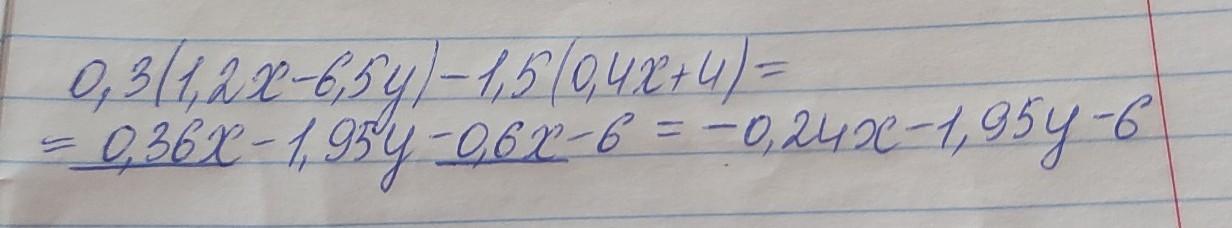 0,3(1,2x-6,5y)-1,5(0,4x+4)=
= 0,36x-1,95y-0,6x-6 = -0,24x-1,95y-6